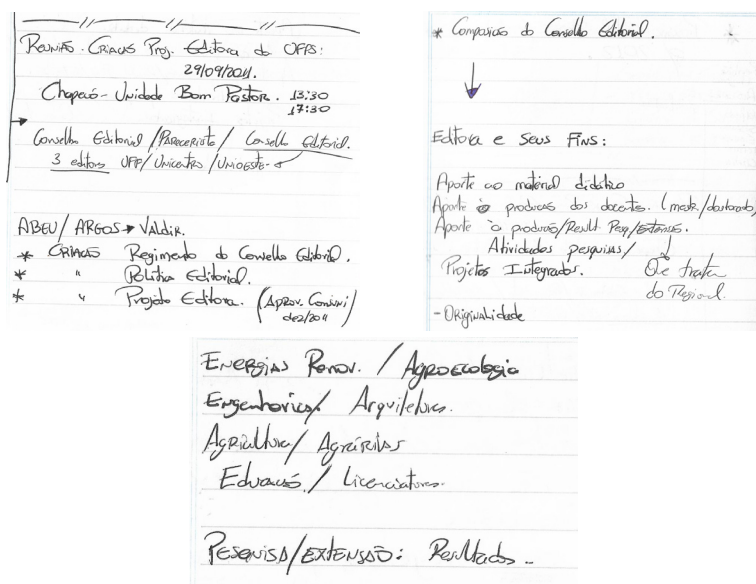 Reunião - Criação Proj. Editora da UFFS:
29/09/2011.
Chapecó - Unidade Bom Pastor. 13:30
17:30
Conselho Editorial / Parecerista / Conselho Editorial.
3 editoras UFFS / Unicentro / Unioeste
ABEU / ARGOS → Valdir.
* Criação Regimento do Conselho Editorial.
* " Política Editorial.
* " Projeto Editora. (Aprov. Consuni
dez/2011)
* Composição do Conselho Editorial.
Editora e Seus Fins:
Aporte ao material didático
Aporte à produção dos docentes. (mestr./doutorado)
Aporte à produção/Result. Pesq/Extensão.
Atividades pesquisas/
Projetos Integrados.
Que trata
do Regional.
- Originalidade
Energias Renov. / Agroecologia
Engenharias / Arquitetura.
Agricultura / Agrárias
Educação / Licenciaturas.
Pesquisa/Extensão: Resultados..